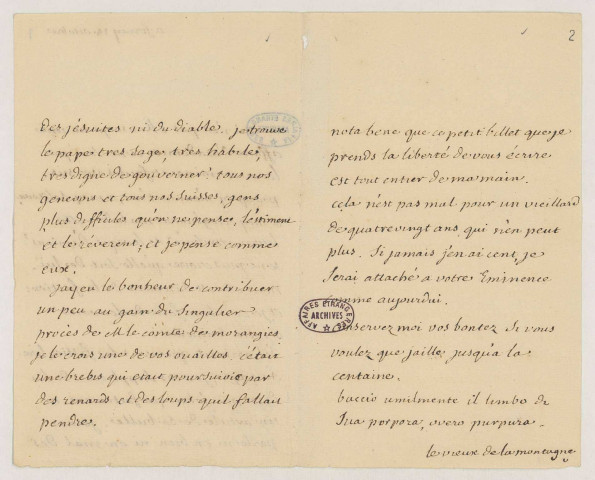 des jésuites ni du diable. je trouve
le pape tres sage, très habile,
tres digne de gouverner. tous nos
genevois et tous nos suisses, gens
plus difficiles qu'on ne pense, l'estiment
et le réverent; et je pense comme
eux.
j'ay eu le bonheur de contribuer
un peu au gain du singulier
procès de M le comte de morangiés.
je le crois une de vos ouailles. c'était
une brebis qui etait poursuivie par
des renards et des loups qu'il fallait
pendre.
2
nota bene que ce petit billet que je
prends la liberté de vous écrire
est tout entier de ma main.
cela n'est pas mal pour un vieillard
de quatrevingt ans, qui n'en peut
plus. Si jamais j'en ai cent, je
serai attaché a votre Eminence
comme aujourdui.
conservez moi vos bontez si vous
voulez que j'aille jusqu'a la
centaine.
baccio umilmente il limbo di
sua porpora, overo purpura.
le vieux de la montagne
AFFAIRES ETRANGERES
ARCHIVES